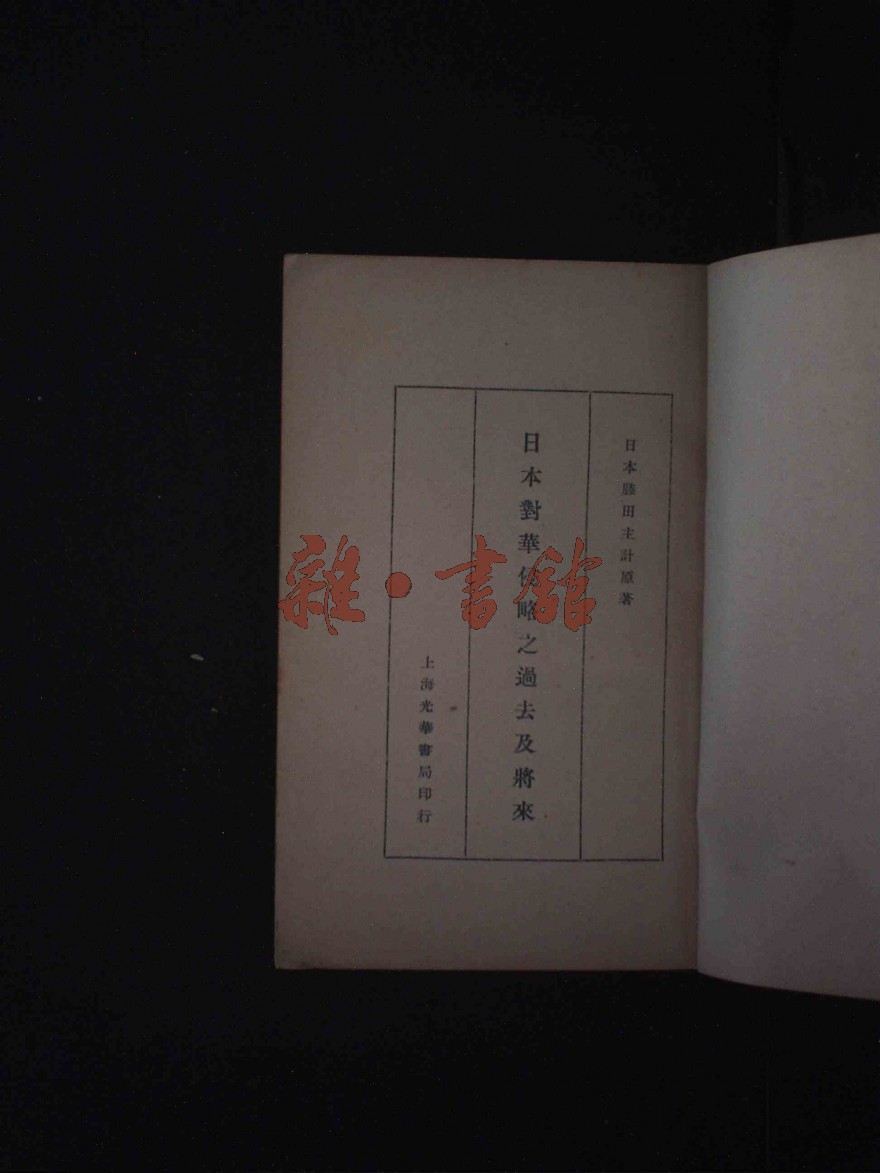 日本藤田主計原著
日本對華侵略之過去及將來
上海光華書局印行
雜·書館